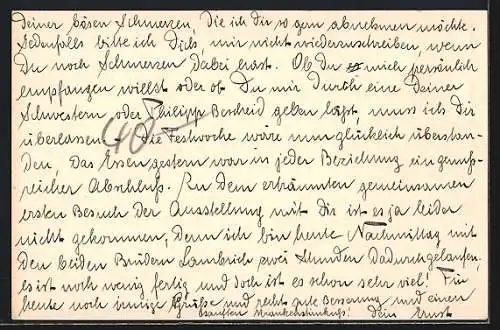 Deiner bösen Schmerzen, Die ich Dir so gern abnehmen möchte.
Jedenfalls bitte ich Dich, mir nicht wiederzuschreiben, wenn
Du noch Schmerzen Dabei hast. Ob Du mich persönlich
empfangen willst oder ob Du mir Durch eine Deiner
Schwestern oder Philipp Bescheid geben läßt, muss ich Dir
überlassen. Die Festwoche wäre nun glücklich überstan-
40.-
Den, Das Essen gestern war in jeder Beziehung ein genuss-
reicher Abschluß. Zu Dem erträumten gemeinsamen
ersten Besuch Der Ausstellung mit Dir ist es ja leider
nicht gekommen, Denn ich bin heute Nachmittag mit
Den beiden Brüdern Lambrich zwei Stunden Dadurchgelaufen,
es ist noch wenig fertig und Doch ist es schon sehr viel! Für
heute noch innige Grüße und recht gute Besserung und einen
sanften Dein Ernst